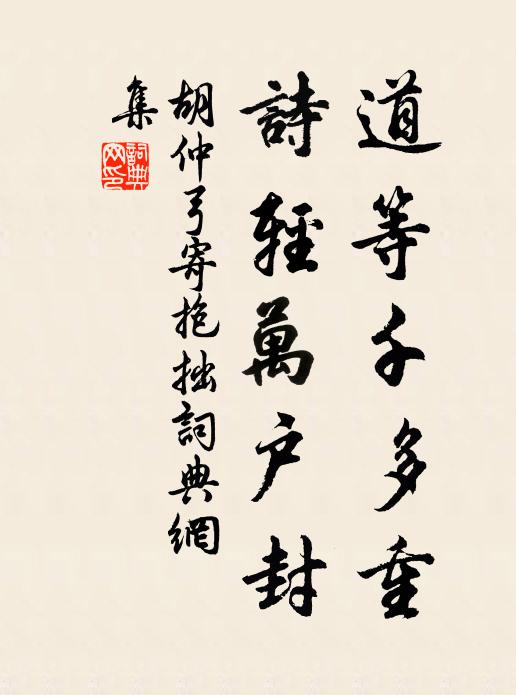 道等千多重
詩輕萬戶封
胡仲弓寄抱拙詞典網
集
詞典網印